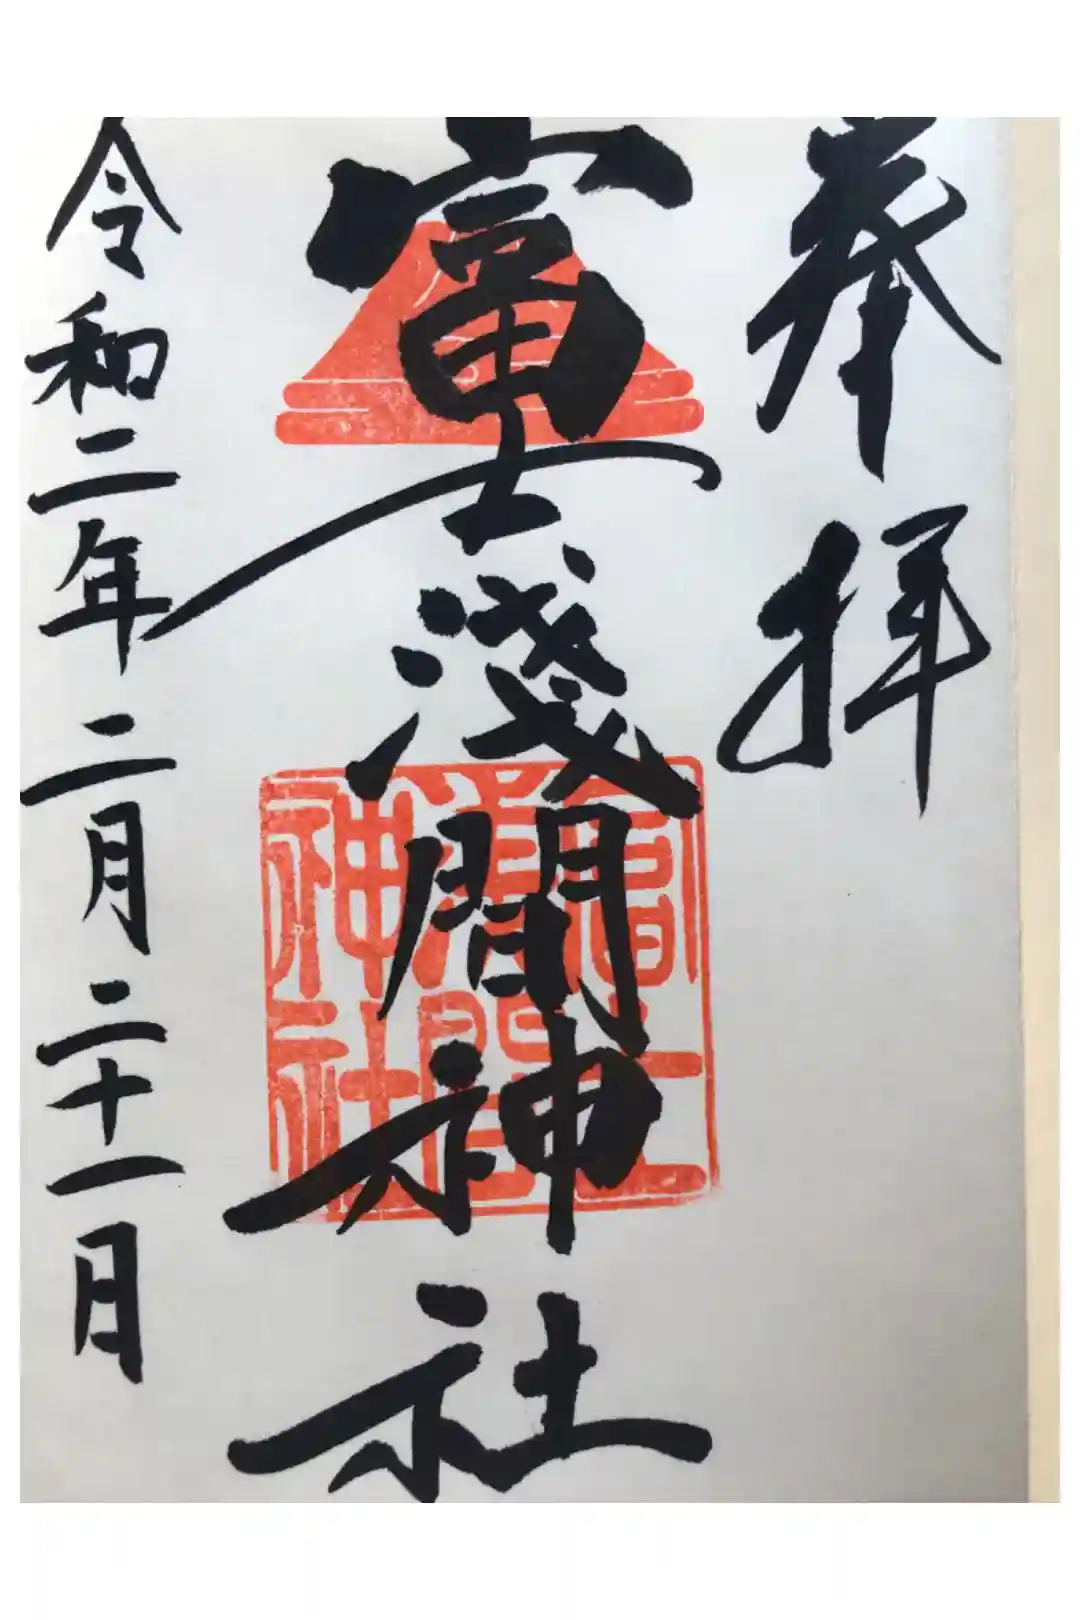 奉拝
富士淺間神社
富士淺間神社
令和二年二月二十一日